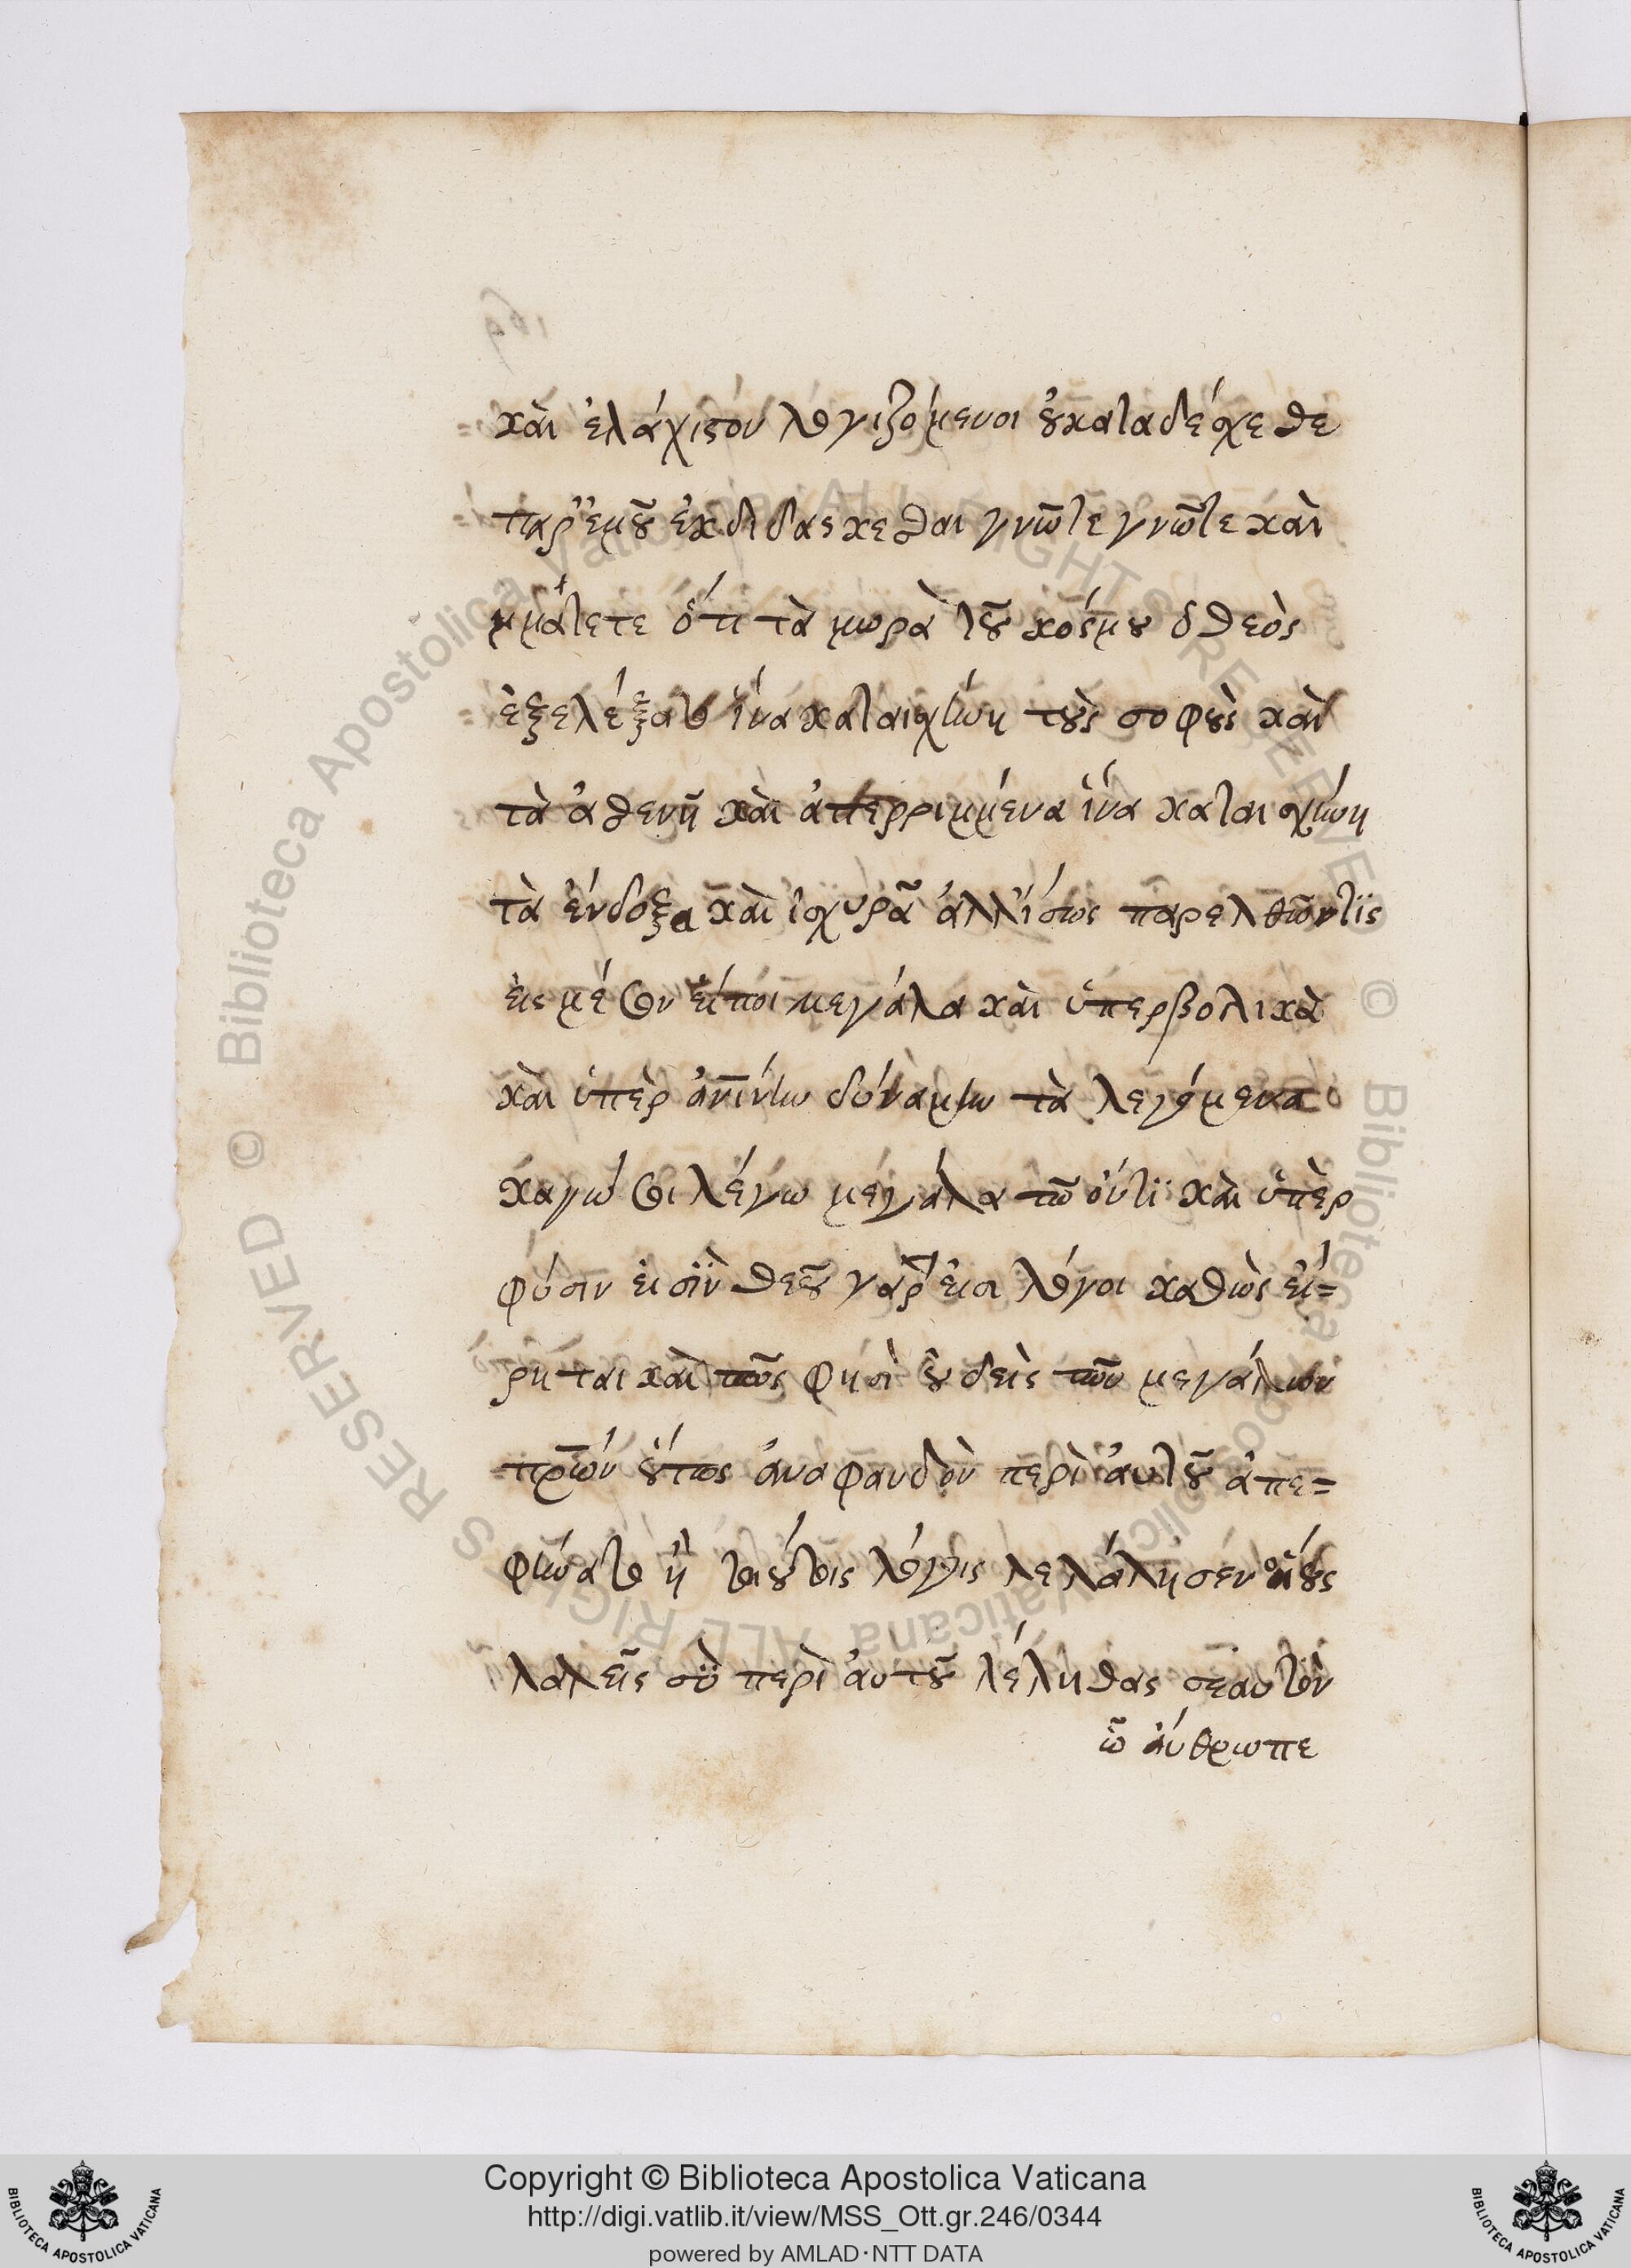 καὶ ἐλάχιστον λογιζόμενοι οὐ καταδέχεσθε
παρ' ἐμοῦ ἐκδιδάσκεσθαι γνῶτε γνῶτε καὶ
ὅτι τὰ μωρὰ τοῦ κόσμου ὁ θεὸς
ἐξελέξατο ἵνα καταισχύνῃ τοὺς σοφοὺς καὶ
τὰ ἀσθενῆ καὶ ἀπερριμμένα ἵνα καταισχύνῃ
τὰ ἔνδοξα καὶ ἰσχυρὰ ἀλλ' ἴσως παρελθών τις
εἰς μέσον εἴποι μεγάλα καὶ ὑπερβολικὰ
καὶ ὑπὲρ δύναμιν τὰ λεγόμενα
καγώ σοι λέγω μεγάλα τῶ ὄντι καὶ ὑπὲρ
φύσιν εἰσὶν θεοῦ γάρ εἰσι λόγοι καθὼς εἴ=
ρηται καὶ πῶς φησὶ οὐδεὶς τῶν μεγάλων
πρ̅ων οὕτως ἀναφανδὸν περὶ ἀυτοῦ ἀπε=
φήνατο ἢ τοιούτοις λόγοις λελάλησεν οἵους
λαλεῖς σὺ περὶ ἀυτοῦ λέληθας σεαυτὸν
ὦ ἄνθρωπε
169
Copyright © Biblioteca Apostolica Vaticana
http://digi.vatlib.it/view/MSS_Ott.gr.246/0344
powered by AMLAD·NTT DATA
BIBLIOTECA APOSTOLICA VATICANA
BIBLIOTECA APOSTOLICA VATICANA
© Biblioteca Apostolica Vaticana ALL RIGHTS RESERVED
© Biblioteca Apostolica Vaticana ALL RIGHTS RESERVED